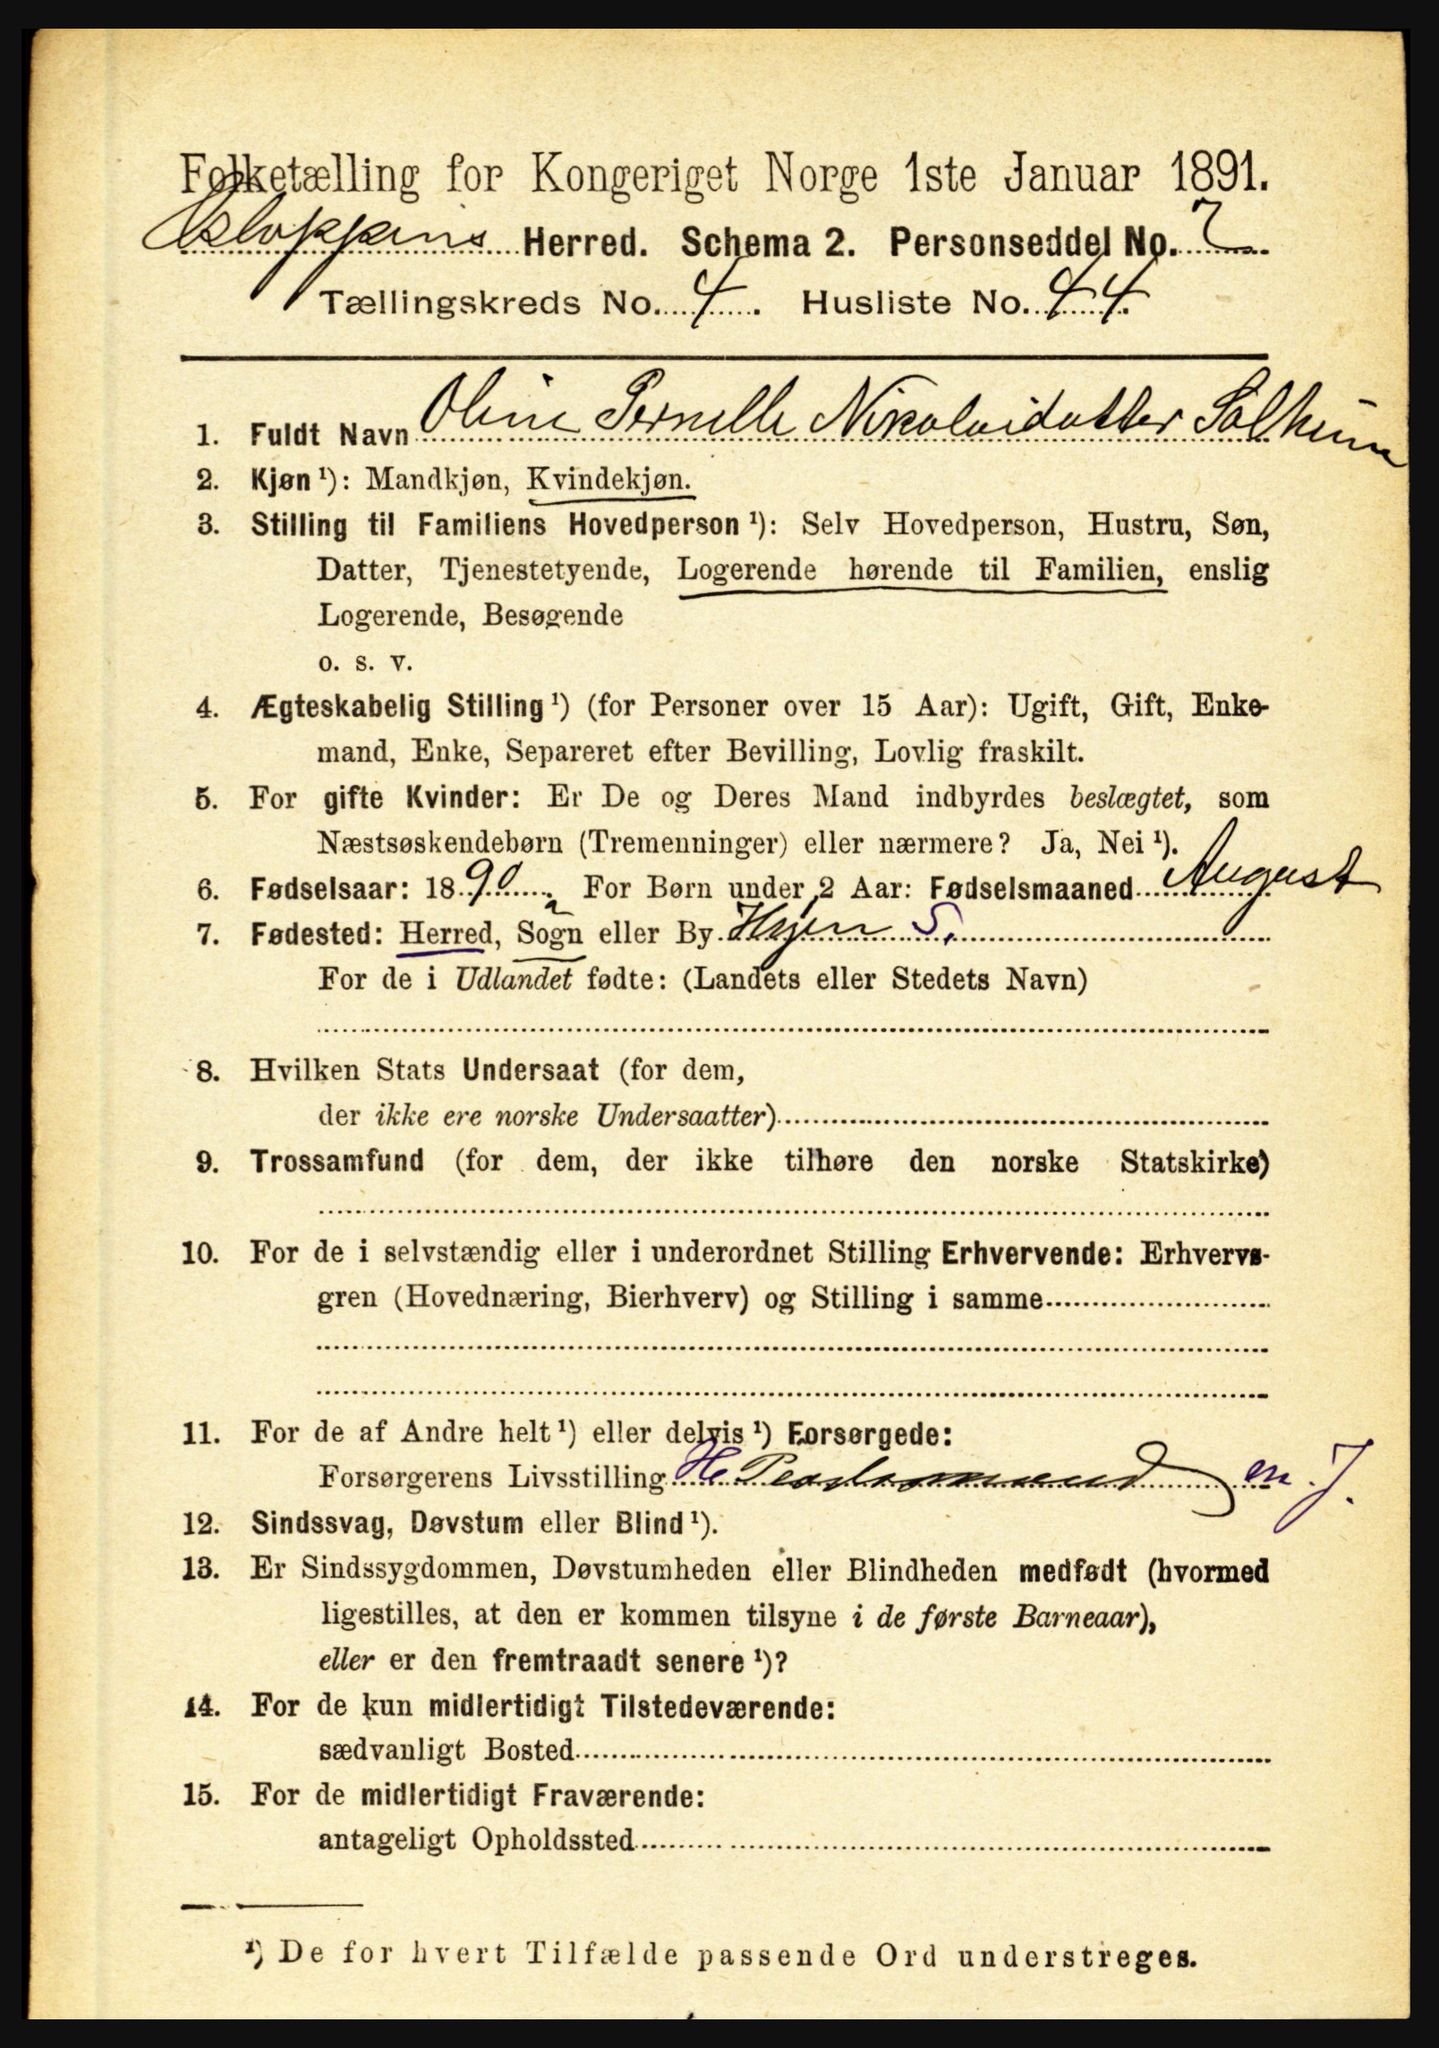 Folketælling for Kongeriget Norge 1ste Januar 1891.
Herred. Schema 2. Personseddel No. 7
Tællingskreds No. 4. Husliste No. 44.
1. Fuldt Navn Oline Pernelle Nikolaidatter Solheim
2. Kjøn ¹): Mandkjøn, Kvindekjøn.
3. Stilling til Familiens Hovedperson ¹): Selv Hovedperson, Hustru, Søn,
Datter, Tjenestetyende, Logerende hørende til Familien, enslig
Logerende, Besøgende
o. s. v.
4. Ægteskabelig Stilling ¹) (for Personer over 15 Aar): Ugift, Gift, Enke-
mand, Enke, Separeret efter Bevilling, Lovlig fraskilt.
5. For gifte Kvinder: Er De og Deres Mand indbyrdes beslægtet, som
Næstsøskendebørn (Tremenninger) eller nærmere? Ja, Nei ¹).
6. Fødselsaar: 1890. For Børn under 2 Aar: Fødselsmaaned August
7. Fødested: Herred, Sogn eller By. S.
For de i Udlandet fødte: (Landets eller Stedets Navn)
8. Hvilken Stats Undersaat (for dem,
der ikke ere norske Undersaatter)
9. Trossamfund (for dem, der ikke tilhøre den norske Statskirke)
10. For de i selvstændig eller i underordnet Stilling Erhvervende: Erhvervs-
gren (Hovednæring, Bierhverv) og Stilling i samme
11. For de af Andre helt ¹) eller delvis ¹) Forsørgede:
Forsørgerens Livsstilling
12. Sindssvag, Døvstum eller Blind ¹).
13. Er Sindssygdommen, Døvstumheden eller Blindheden medfødt (hvormed
ligestilles, at den er kommen tilsyne i de første Barneaar),
eller er den fremtraadt senere ¹)?
14. For de kun midlertidigt Tilstedeværende:
sædvanligt Bosted
15. For de midlertidigt Fraværende:
antageligt Opholdssted
¹) De for hvert Tilfælde passende Ord understreges.